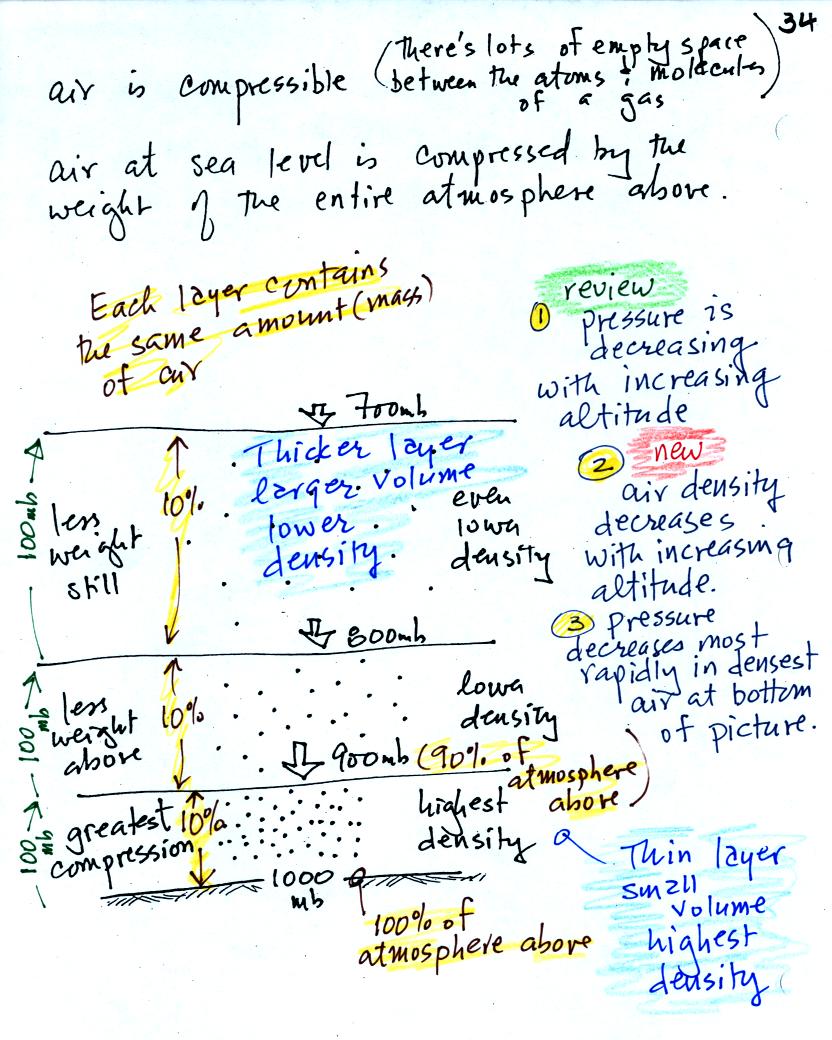 34
air is compressible (there's lots of empty space
between the atoms & molecules
of a gas)
air at sea level is compressed by the
weight of the entire atmosphere above.
Each layer contains
the same amount (mass)
of air
review
1 pressure is
decreasing
with increasing
altitude
2 new
air density
decreases
with increasing
altitude.
3 Pressure
decreases most
rapidly in densest
air at bottom
of picture.
700mb
100mb
less
weight
still
10%
Thicker layer
larger volume
lower
density
even
lowa
density
800mb
100
mb
less
weight
above
10%
lowa
density
900mb (90% of
atmosphere
above)
100
mb
greatest
compression
10%
highest
density
1000
mb
100% of
atmosphere above
Thin layer
small
volume
highest
density